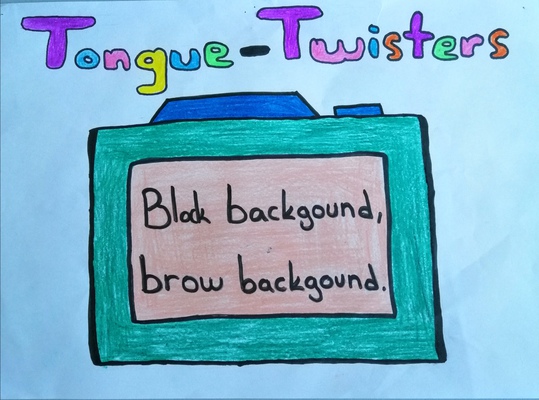 Tongue-Twisters
Black backgound,
brow backgound.